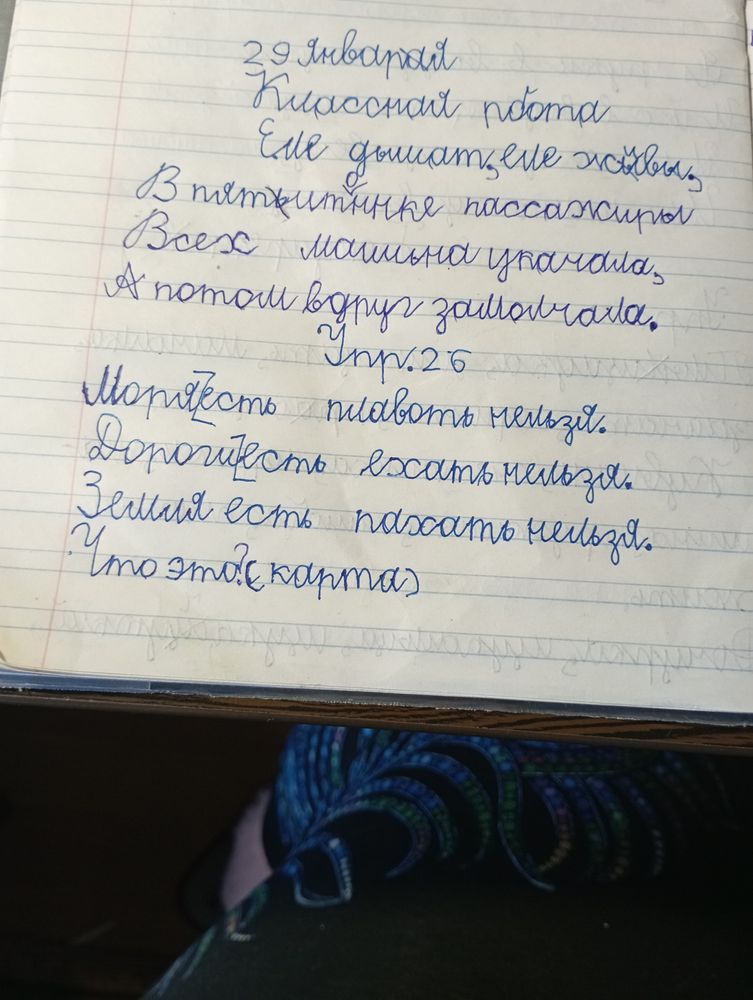 29 январая
Классная рбота
Еле дышат, еле живы,
В пятитоннке пассажиры
Всех машына укачала,
А потом вдруг замолчала.
Упр. 26
Моря есть плавоть нельзя.
Дороги есть ехать нельзя.
Земля есть пахать нельзя.
Что это? (карта)